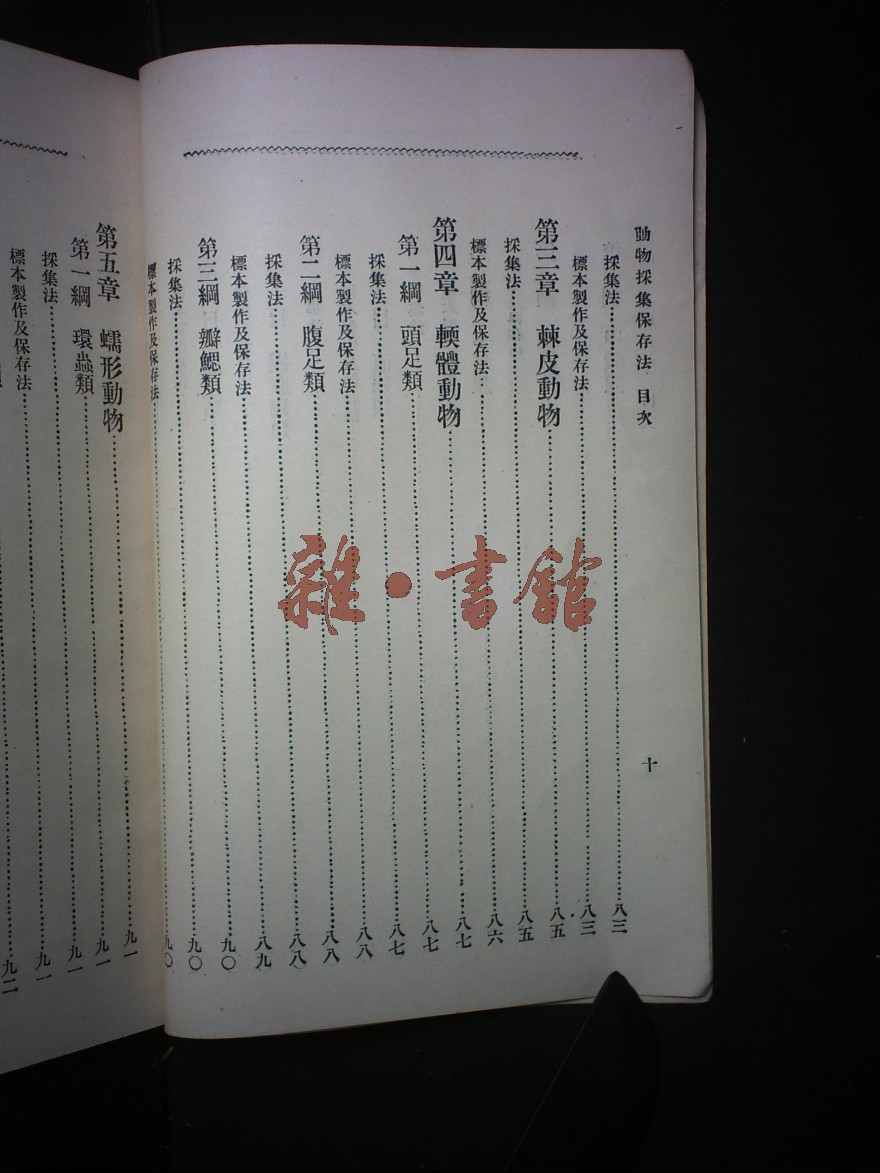 動物採集保存法 目次 十
採集法……八三
標本製作及保存法……八三
第三章 棘皮動物……八五
採集法……八五
標本製作及保存法……八六
第四章 輭體動物……八七
第一綱 頭足類……八七
採集法……八七
標本製作及保存法……八八
第二綱 腹足類……八八
採集法……八八
標本製作及保存法……八九
第三綱 瓣鰓類……九〇
採集法……九〇
標本製作及保存法……九〇
第五章 蠕形動物……九一
第一綱 環蟲類……九一
採集法……九一
標本製作及保存法……九一
九二
雜·書館